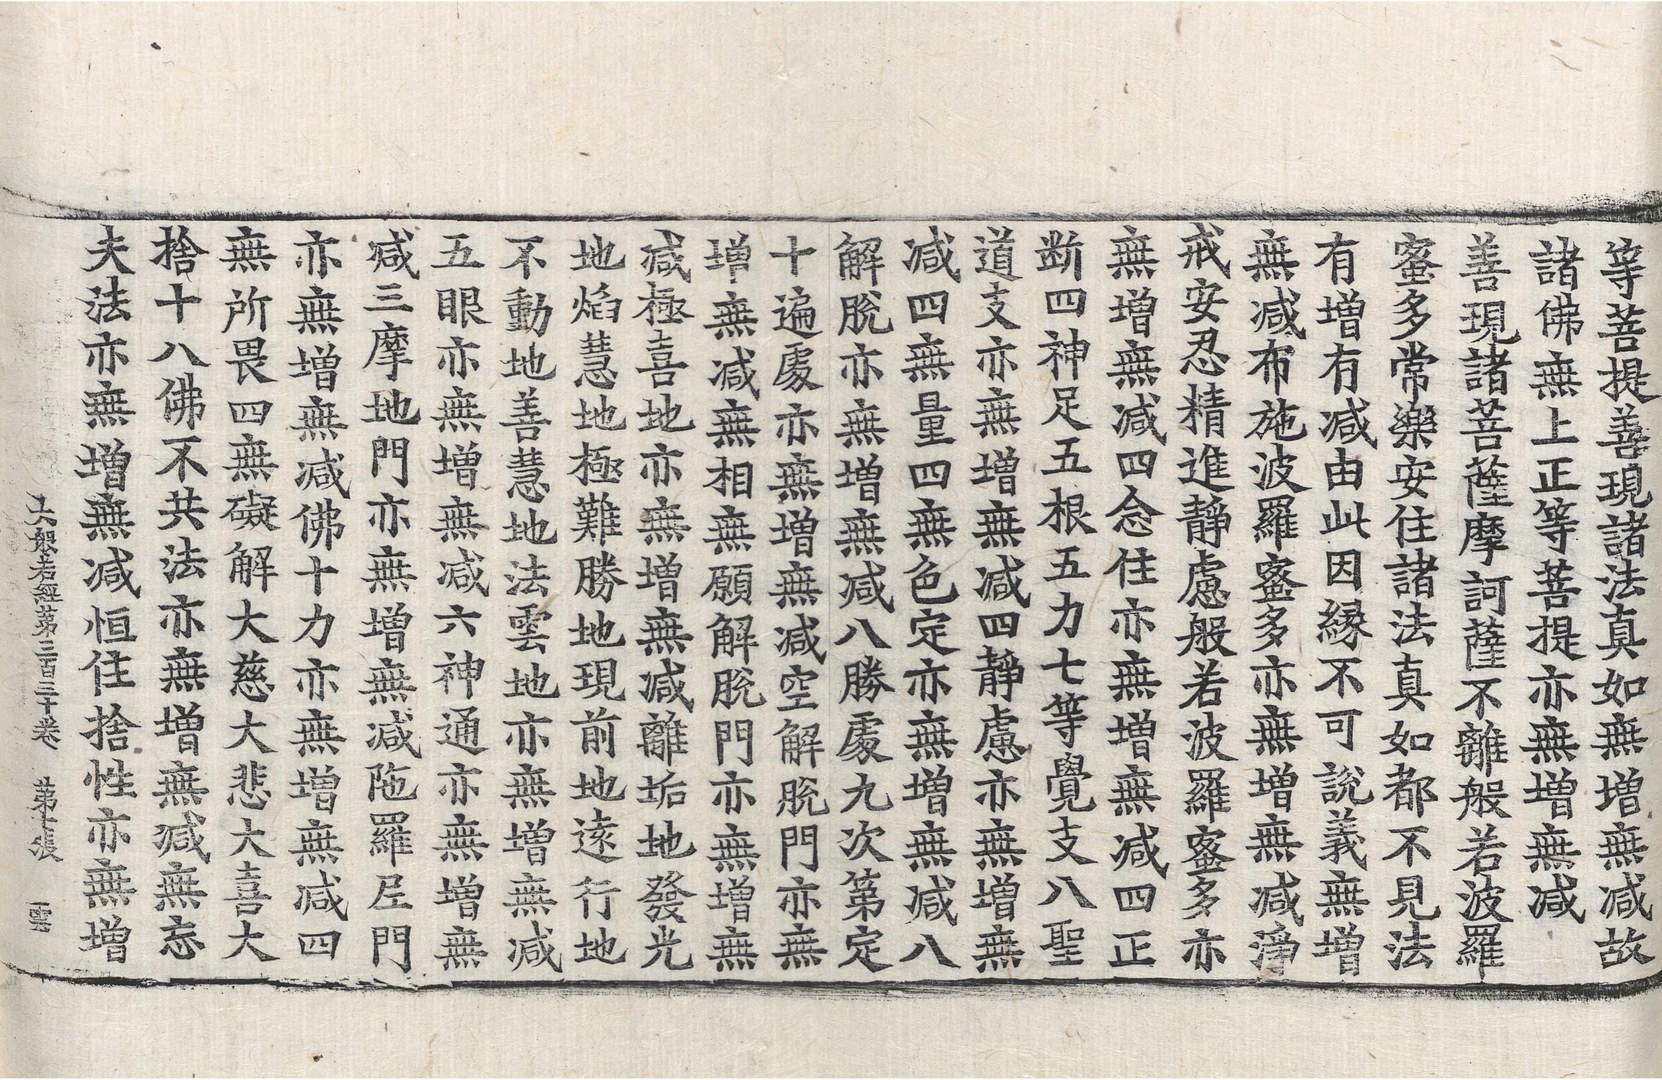 等菩提善現諸法真如無增無减故
諸佛無上正等菩提亦無增無减
善現諸菩薩摩訶薩不離般若波羅
蜜多常樂安住諸法真如都不見法
有增有减由此因緣不可說義無增
無减布施波羅蜜多亦無增無减淨
戒安忍精進靜慮般若波羅蜜多亦
無增無减四念住亦無增無减四正
断四神足五根五力七等覺支八聖
道支亦無增無减四靜慮亦無增無
减四無量四無色定亦無增無减八
解脫亦無增無减八勝處九次第定
十遍處亦無增無减空解脫門亦無
增無减無相無願解脫門亦無增無
减極喜地亦無增無减離垢地發光
地焰慧地極難勝地現前地遠行地
不動地善慧地法雲地亦無增無减
五眼亦無增無减六神通亦無增無
减三摩地門亦無增無减陁羅尼門
亦無增無减佛十力亦無增無减四
無所畏四無礙解大慈大悲大喜大
捨十八佛不共法亦無增無减無忘
失法亦無增無减恒住捨性亦無增
大般若經第三百三十卷 第十張 雲